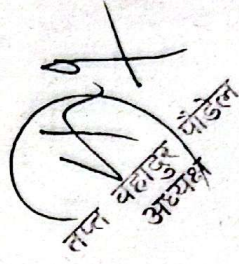 तप्त बहादुर पौडेल
अध्यक्ष